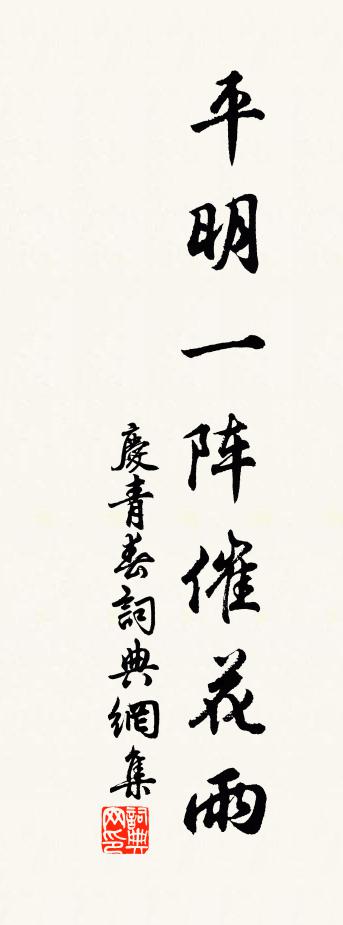 平明一阵催花雨
慶青春詞典網集
詞典
网印